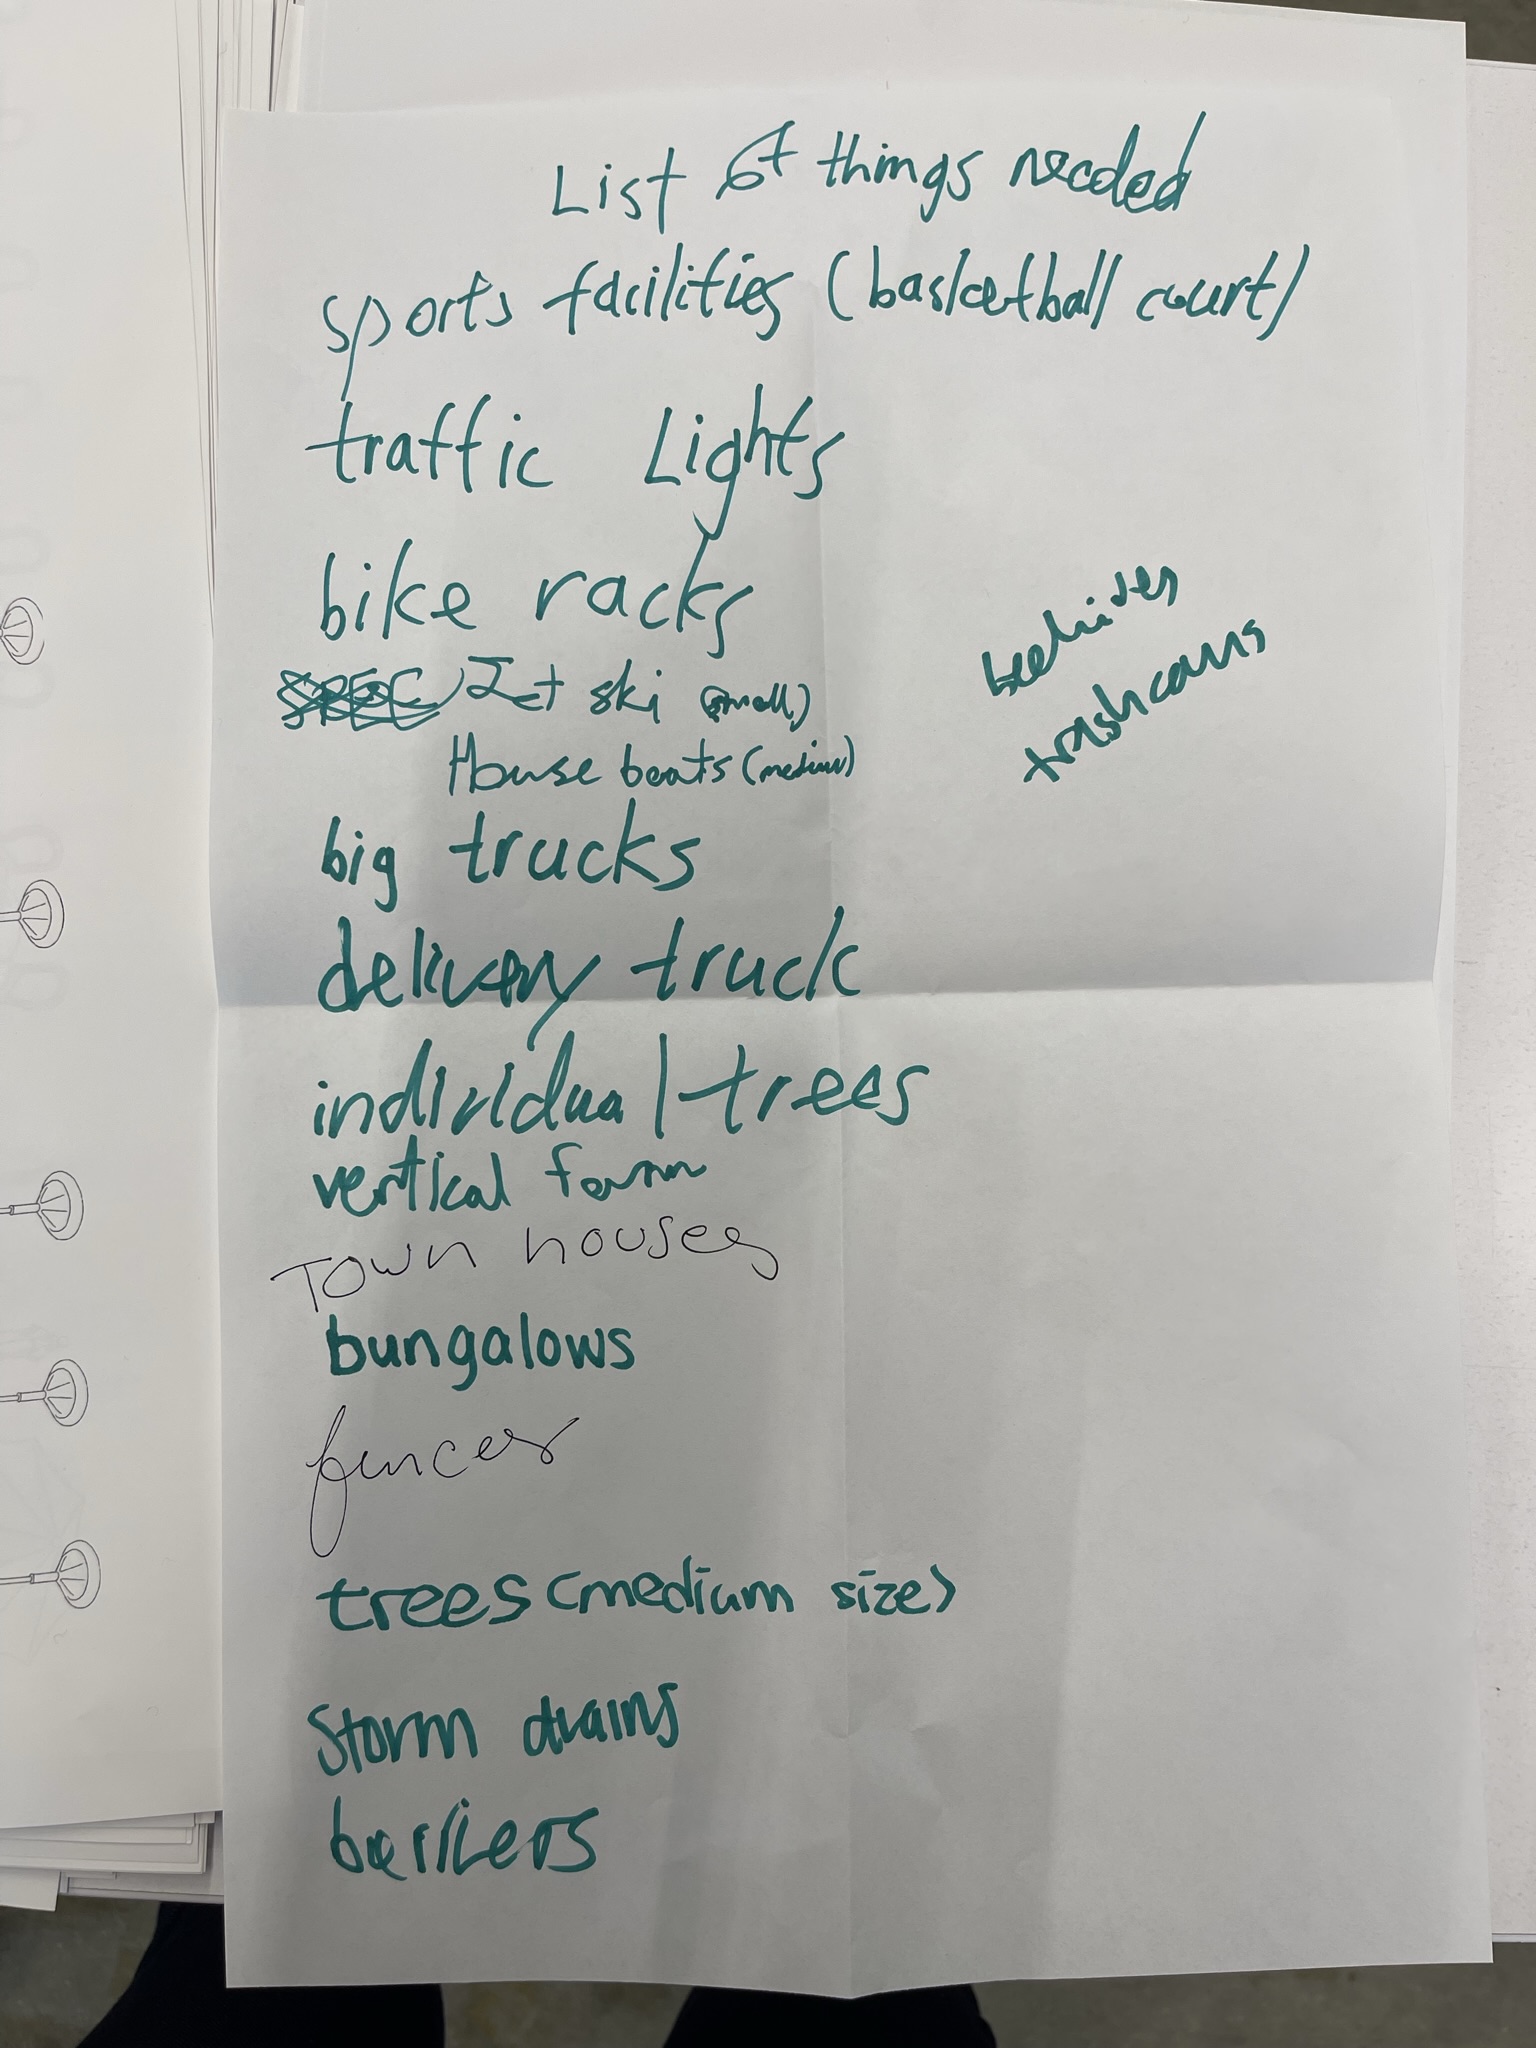 List of things needed
sports facilities (basketball court)
traffic Lights
bike racks
Jet ski (small)
House boats (medium)
beehives
trashcans
big trucks
delivery truck
individual trees
vertical farm
Town houses
bungalows
fences
trees (medium size)
Storm drains
barriers